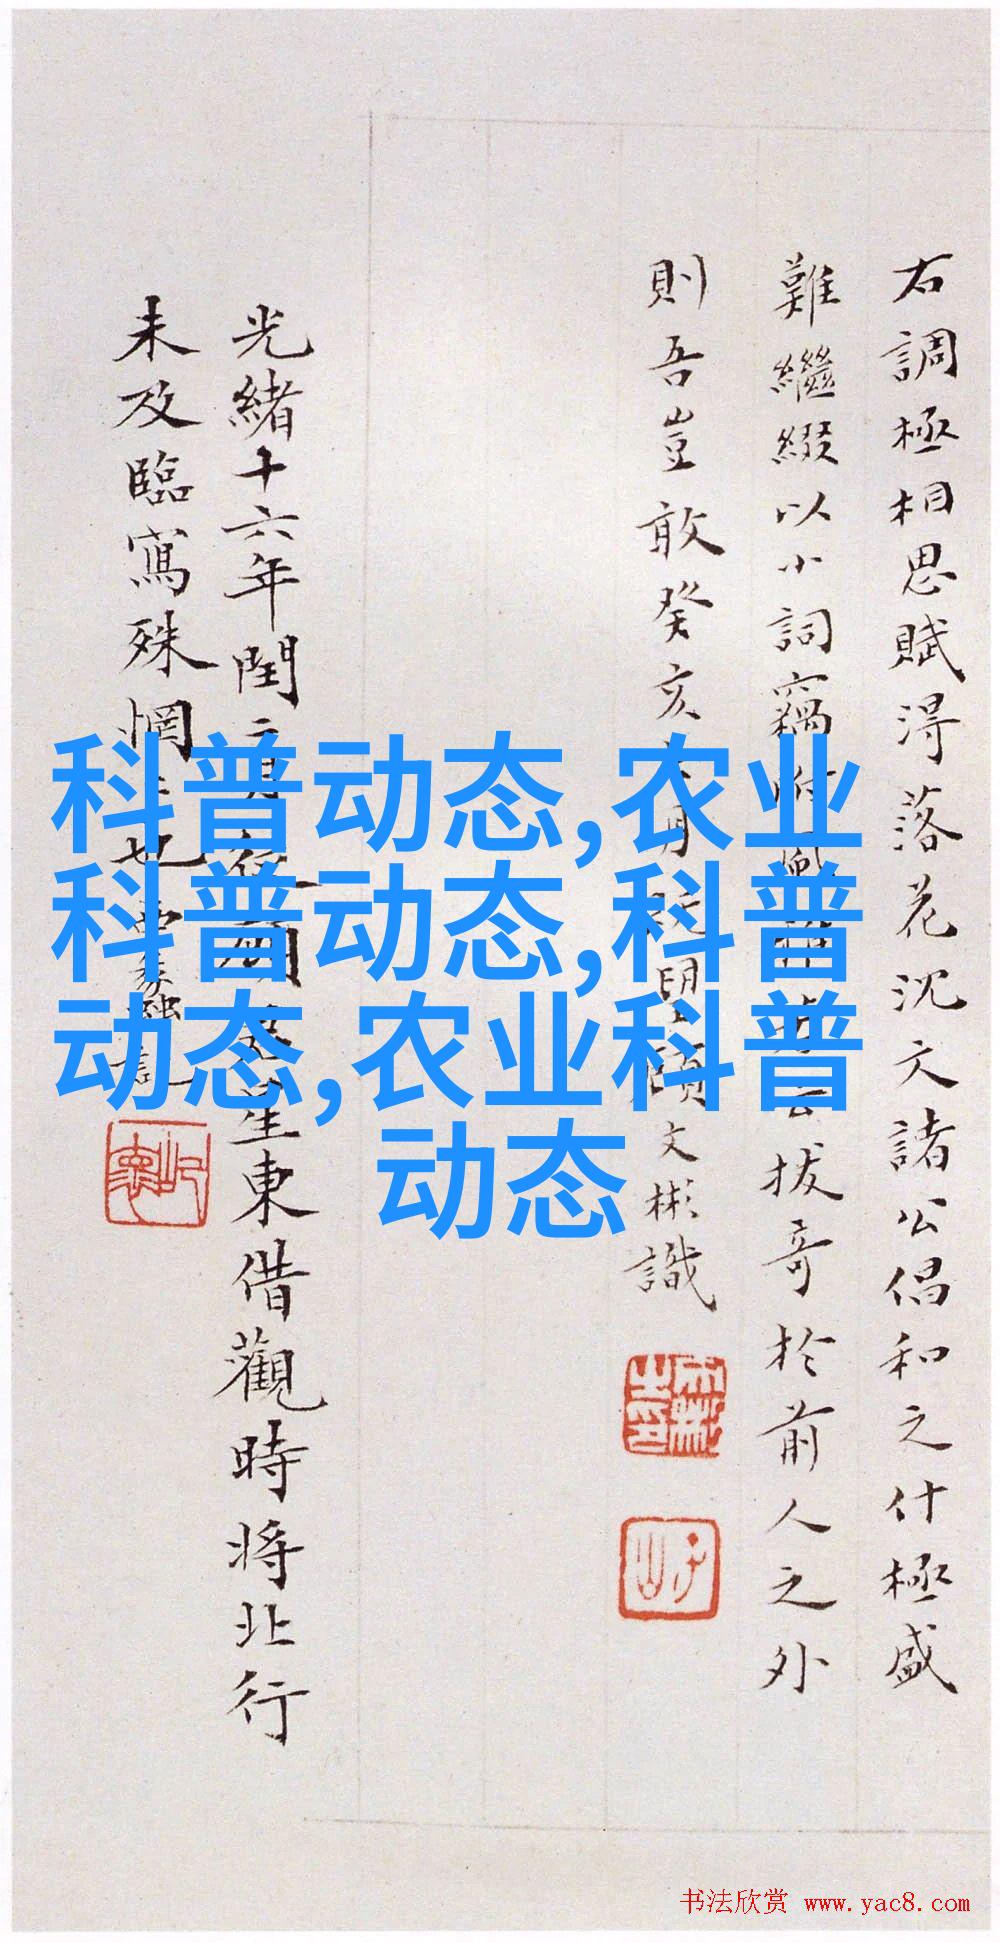 右調極相思賦得落花沈文諸公倡和之什極盛
難繼綴以小詞竊附
拔奇於前人之外
則吾豈敢癸亥
月既望顧文彬識
光緒十六年閏二月
星東借觀時將北行
未及臨寫殊惘
也
記
科普动态,农业
科普动态,科普
动态,农业科普
动态
书法欣赏 www.yac8.com